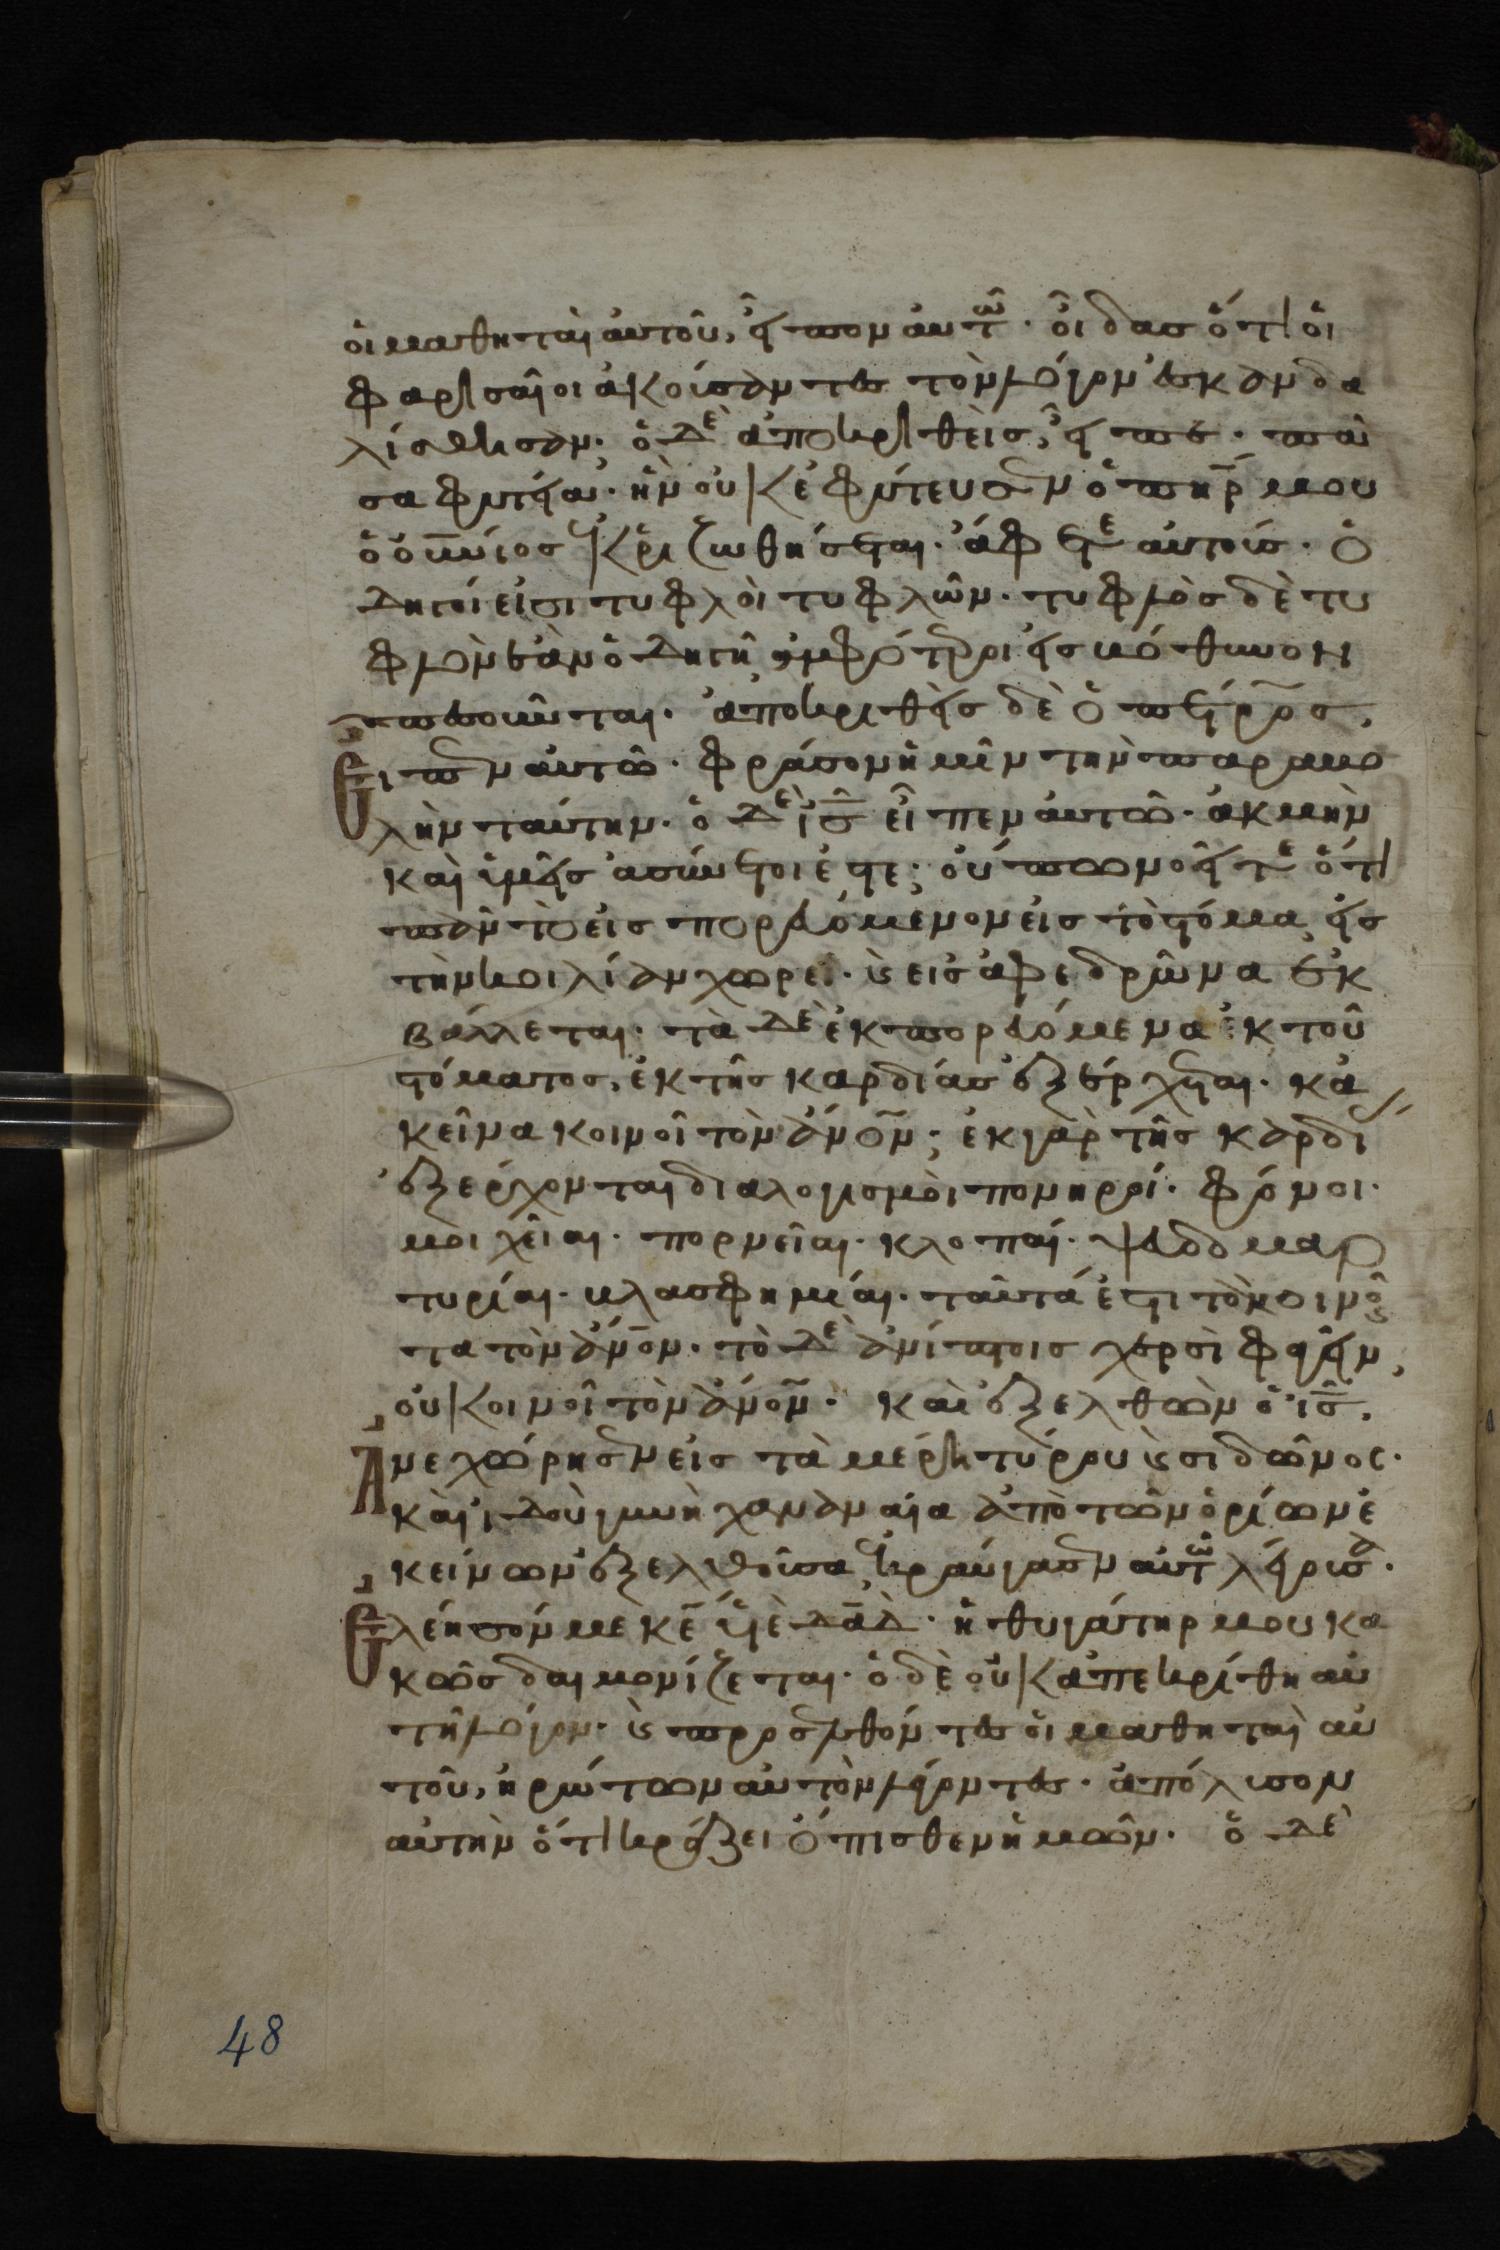 οἱ μαθηταὶ αὐτοῦ, εἶπον αὐτῶ· οἶδας ὅτι οἱ
φαρισαῖοι ἀκούσαντες τὸν λόγον ἐσκανδα
λίσθησαν· ὁ δὲ ἀποκριθεὶς, εἶπε· πᾶ
σα φυτεία· ἣν οὐκ ἐφύτευσεν ὁ πηρ μου
ὁ οὐνιος ἐκριζωθήσεται· ἄφετε αὐτούς· ὁ
δηγοί εἰσι τυφλοὶ τυφλῶν· τυφλὸς δὲ τυ
φλὸν ἐὰν ὁδηγῆ ἀμφότεροι εἰς βόθυνον
πεσοῦνται· ἀποκριθεὶς δὲ ὁ πέτρος,
Εἶπεν αὐτῶ· φράσον ἡμῖν τὴν παραβο
λὴν ταύτην· ὁ δὲ ις εἶπεν αὐτῶ· ἀκμὴν
καὶ ὑμεῖς ἀσύνετοι ἐστε; οὔπω νοεῖτε ὅτι
πᾶν τὸ εἰσπορευόμενον εἰς τὸ στόμα, εἰς
τὴν κοιλίαν χωρεῖ· κ εἰς ἀφεδρῶνα ἐκ
βάλλεται· τὰ δὲ ἐκπορευόμενα ἐκ τοῦ
στόματος, ἐκ τῆς καρδίας ἐξέρχεται· κἀ
κεῖνα κοινοῖ τὸν ἀνον; ἐκ γὰρ τῆς καρδι
ἐξέρχονται διαλογισμοὶ πονηροί· φόνοι·
μοιχεῖαι· πορνεῖαι· κλοπαί· ψευδομαρ
τυρίαι· βλασφημίαι· ταῦτά ἐστι τὸ κοινοῦ
τα τὸν ἀνον· τὸ δὲ ἀνίπτοις χερσὶ φαγεῖν,
οὐ κοινοῖ τὸν ἀνον· καὶ ἐξελθὼν ὁ ις,
Ἀνεχώρησεν εἰς τὰ μέρη τύρου κ σιδῶνος·
καὶ ἰδοὺ γυνὴ χαναναία ἀπὸ τῶν ὁρίων ἐ
κείνων ἐξελθοῦσα ἐκραύγασεν αὐτῶ λέγουσα·
Ἐλέησόν με κε ὑιὲ δαδ· ἡ θυγάτηρ μου κα
κῶς δαιμονίζεται· ὁ δὲ οὐκ ἀπεκρίθη αὐ
τῆ λόγον· κ προσελθόντες οἱ μαθηταὶ αὐ
τοῦ, ἠρώτων αὐτὸν λέγοντες· ἀπόλυσον
αὐτὴν ὅτι κράζει ὄπισθεν ἡμῶν· ὁ δὲ
48